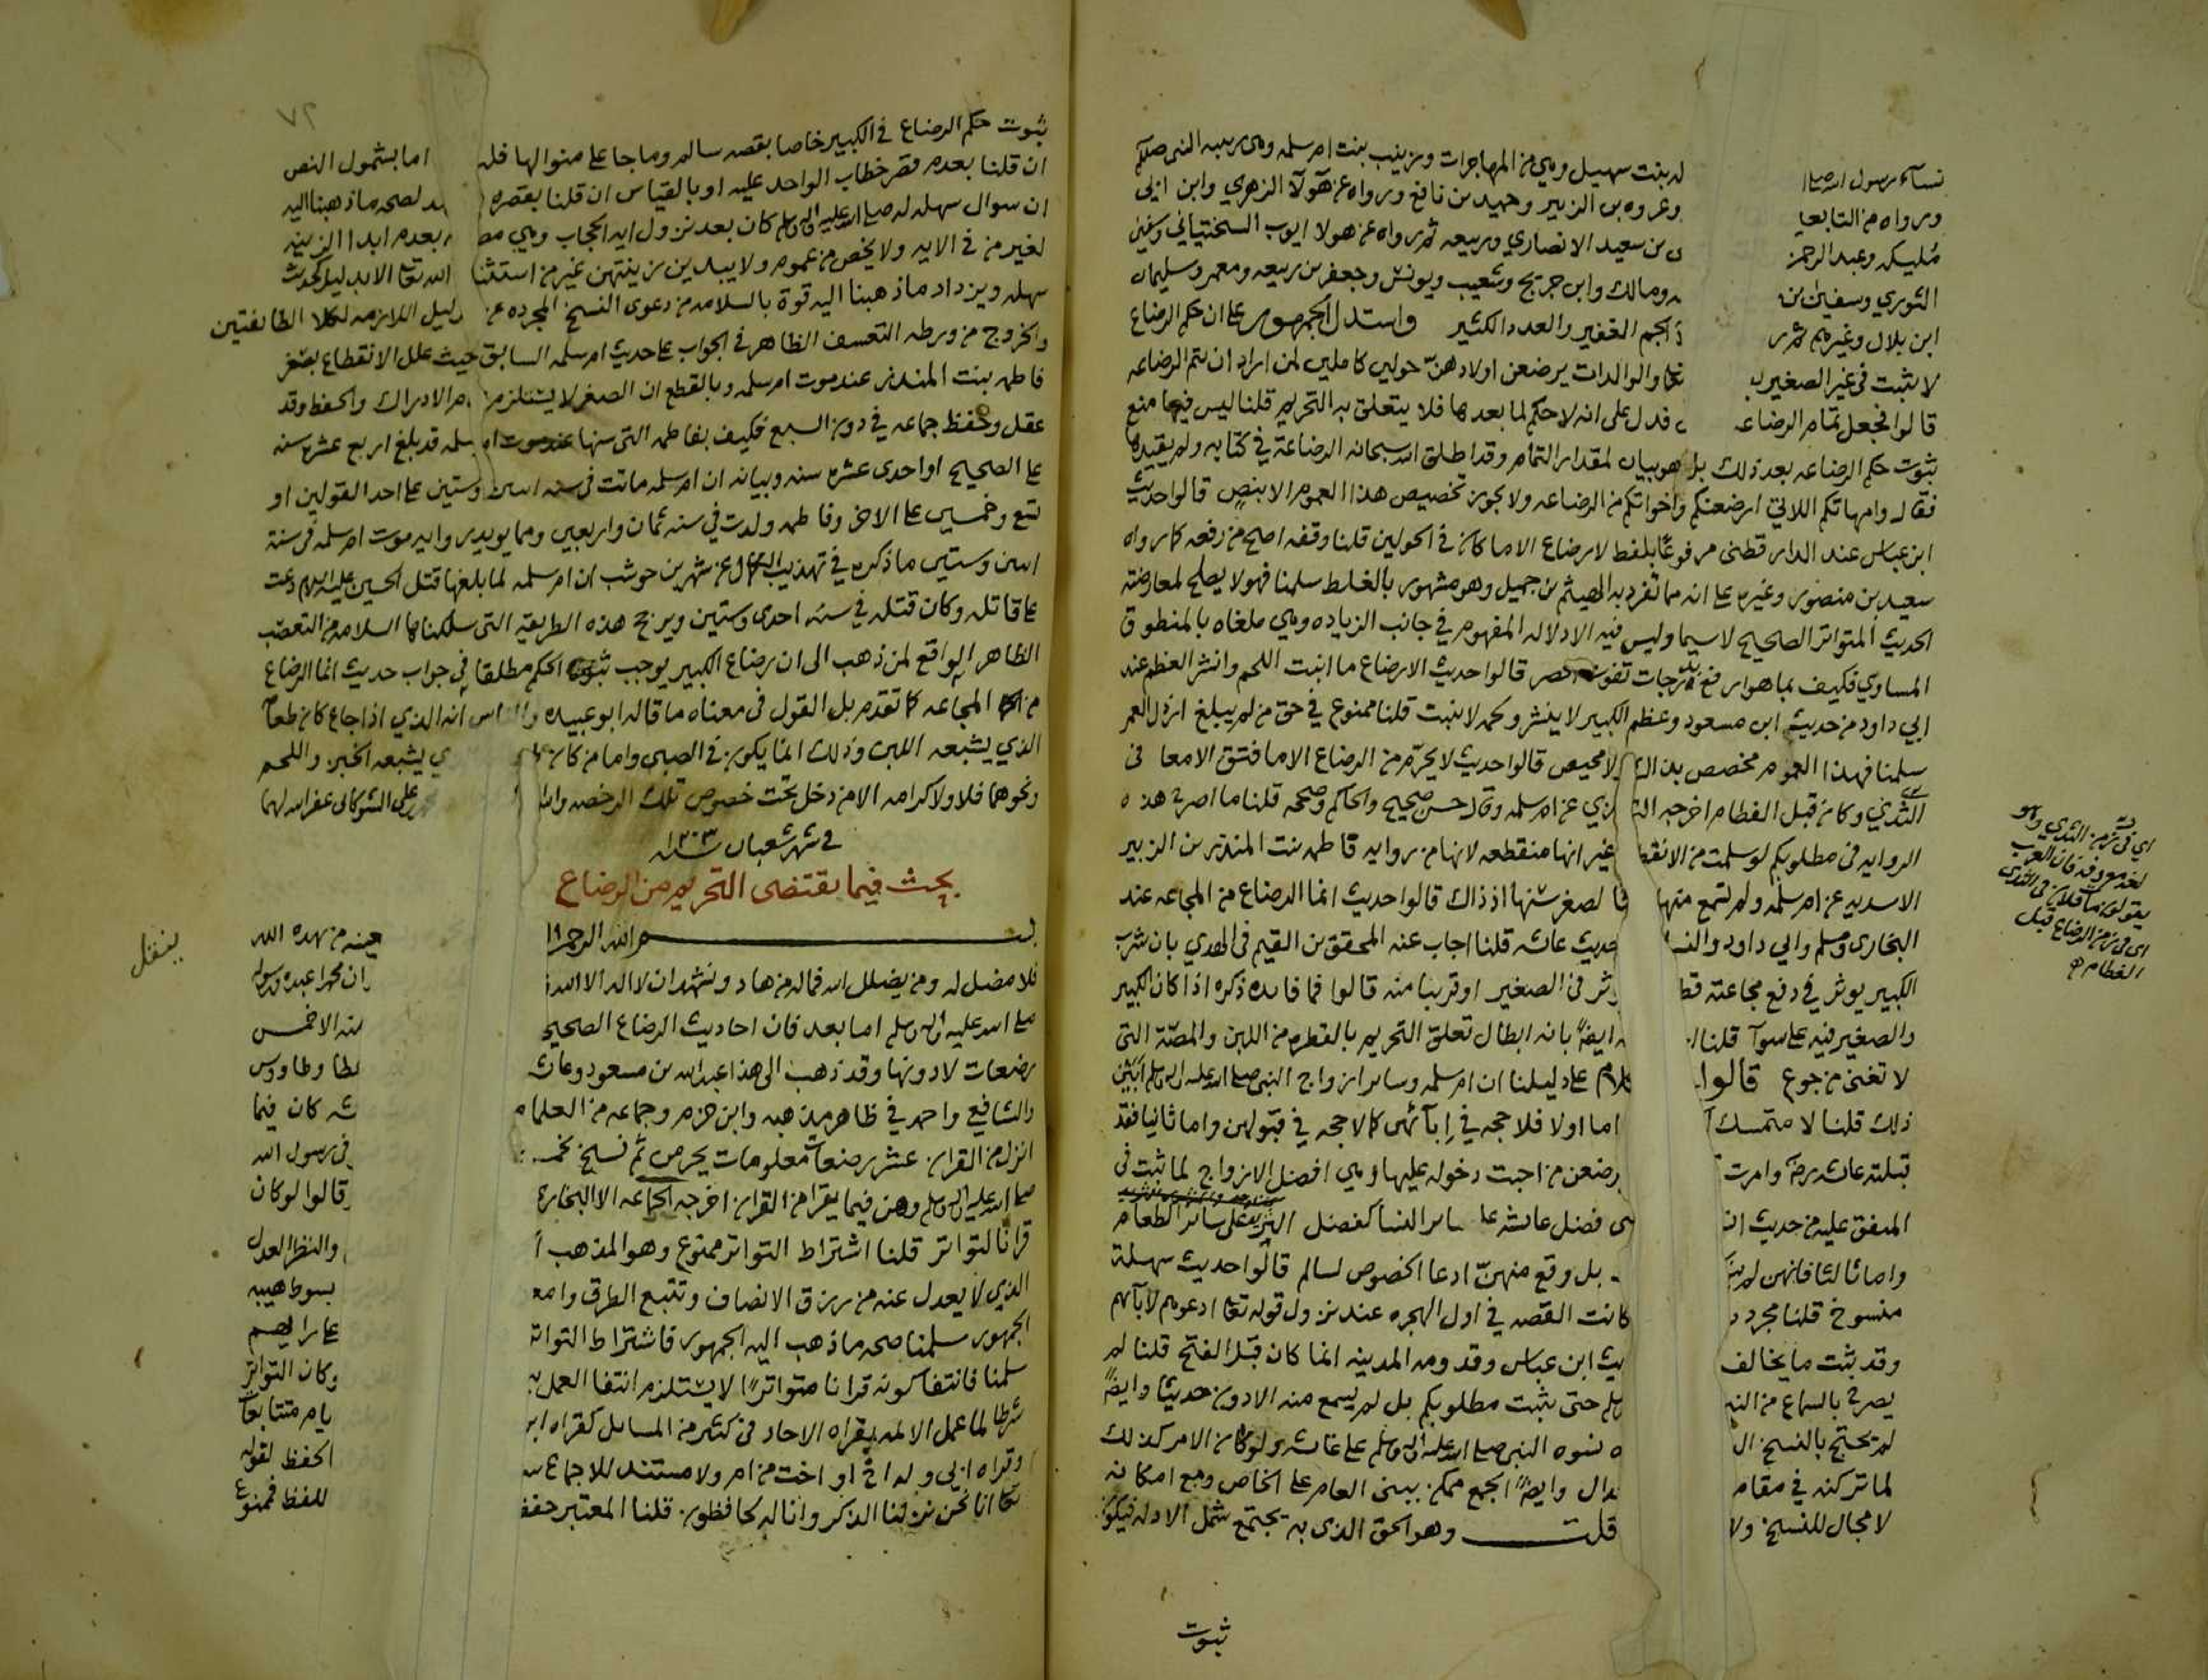 نساء رسول الله صلى له بنت سهيل وهي من المهاجرات وزينب بنت ام سلمه وهي ربيبه النبي صللم
ورواه من التابعيا وعروه بن الزبير وحميد بن نافع ورواه عن هولآ الزهري وابن ابي
مليكه وعبد الرحمن ى بن سعيد الانصاري وربيعه ثم رواه عن هولا ايوب السختياني وسفين
الثوري وسفين بن ه ومالك وابن جريج وشعيب ويونس وجعفر بن ربيعه ومعمر وسليمان
ابن بلال وغيرهم ثم ر الجم الغفير والعدد الكثير واستدل الجمهور على ان حكم الرضاع
لا يثبت في غير الصغير ب تعا والوالدات يرضعن اولادهن حولين كاملين لمن اراد ان يتم الرضاعه
قالوا فجعل تمام الرضاعه فدل على انه لا حكم لما بعدها فلا يتعلق به التحريم قلنا ليس فيها منع
ثبوت حكم الرضاعه بعد ذلك بل هو بيان لمقدار التمام وقد اطلق الله سبحانه الرضاعة في كتابه ولم يقيدها
فقال وامهاتكم اللاتي ارضعنكم واخواتكم من الرضاعه ولا يجوز تخصيص هذا العموم الا بنص قالوا حديث
ابن عباس عند الدارقطني مرفوعا بلفظ لا رضاع الا ما كان في الحولين قلنا وقفه اصح من رفعه كما رواه
سعيد بن منصور وغيره على انه مما تفرد به الهيثم بن جميل وهو مشهور بالغلط سلمنا فهو لا يصلح لمعارضة
الحديث المتواتر الصحيح لا سيما وليس فيه الا دلاله المفهوم في جانب الزياده وهي ملغاه بالمنطوق
المساوي فكيف بما هو ارفع بدرجات تفوت الحصر قالوا حديث لا رضاع الا ما انبت اللحم وانشر العظم عند
ابي داود من حديث ابن مسعود وعظم الكبير لا ينشر ولحمه لا ينبت قلنا ممنوع في حق من لم يبلغ ارذل العمر
سلمنا فهذا العموم مخصص بدل لا محيص قالوا حديث لا يحرم من الرضاع الا ما فتق الامعا في
الثدي وكان قبل الفطام اخرجه الت مذي عن ام سلمه وقال حسن صحيح والحاكم وصححه قلنا ما اصرح هذه
الروايه في مطلوبكم لو سلمت من الانقطا غير انها منقطعه لانها من روايه فاطمه بنت المنذر بن الزبير
الاسديه عن ام سلمه ولم تسمع منها لصغر سنها اذ ذاك قالوا حديث انما الرضاع من المجاعه عند
البخاري ومسلم وابي داود والنسا حديث عائشه قلنا اجاب عنه المحقق بن القيم في الهدي بان شرب
الكبير يوثر في دفع مجاعته قط وثر في الصغير او قريبا منه قالوا فما فايده ذكره اذا كان الكبير
والصغير فيه على سوآ قلنا ايضا بانه ابطال تعلق التحريم بالقطره من اللبن والمصة التي
لا تغني من جوع قالوا كلام على دليلنا ان ام سلمه وسائر ازواج النبي صلى الله عليه واله وسلم ابين
ذلك قلنا لا متمسك اما اولا فلا حجه في إبائهن كما لا حجه في قبولهن واما ثانيا فقد
قبلته عائشه رض وامرت يرضعن من احبت دخوله عليها وهي افضل الازواج لما ثبت في
المتفق عليه من حديث ان فضل عائشه على سائر النسا كفضل الثريد على سائر الطعام
واما ثالثا فانهن لم بل وقع منهن ادعا الخصوص لسالم قالوا حديث سهلة
منسوخ قلنا مجرد د كانت القصه في اول الهجره عند نزول قوله تعا ادعوهم لآبائهم
وقد ثبت ما يخالف يث ابن عباس وقدومه المدينه انما كان قبل الفتح قلنا لم
يصرح بالسماع من الن لم حتى يثبت مطلوبكم بل لم يسمع منه الا دون حديثا وايضا
لم يحتج بالنسخ ال ه نسوه النبي صلى الله عليه واله وسلم على عائشه ولو كان الامر كذلك
لما تركنه في مقام دال وايضا الجمع ممكن ببنى العام على الخاص ومع امكانه
لا مجال للنسخ ولا قلت وهو الحق الذي به يجتمع شمل الادله فيكون
ثبوت
اي في زمن الثدي وهو
لغه معروفه فان العرب
يقولون مات فلان في الثدي
اي في زمن الرضاع قبل
الفطام
٧٢
ثبوت حكم الرضاع في الكبير خاصا بقصه سالم وما جا على منوالها فله اما بشمول النص
ان قلنا بعدم قصر خطاب الواحد عليه او بالقياس ان قلنا بقصره لصحه ما ذهبنا اليه
ان سوال سهله له صلى الله عليه واله وسلم كان بعد نزول ايه الحجاب وهي مص بعدم ابدا الزينه
لغير من في الايه ولا يخص من عموم ولا يبدين زينتهن غير من استثنا الله تعا الا بدليل كحديث
سهله ويزداد ما ذهبنا اليه قوة بالسلامه من دعوى النسخ المجرده عن دليل اللازمه لكلا الطائفتين
والخروج من ورطه التعسف الظاهر في الجواب على حديث ام سلمه السابق حيث علل الانقطاع بصغر
فاطمه بنت المنذر عند موت ام سلمه وبالقطع ان الصغر لا يستلزم عدم الادراك والحفظ وقد
عقل وحفظ جماعه في دون السبع فكيف بفاطمه التي سنها عند موت ام سلمه قد بلغ اربع عشره سنه
على الصحيح او احدى عشره سنه وبيانه ان ام سلمه ماتت في سنه اثنين وستين على احد القولين او
تسع وخمسين على الاخر وفاطمه ولدت في سنه ثمان واربعين ومما يويد روايه موت ام سلمه في سنة
اثنين وستين ما ذكره في تهذيب الكمال عن شهر بن حوشب ان ام سلمه لما بلغها قتل الحسين عليه السلام دعت
على قاتله وكان قتله في سنه احدى وستين ويرجح هذه الطريقه التي سلكناها السلامه من التعصب
الظاهر الواقع لمن ذهب الى ان رضاع الكبير يوجب ثبوت الحكم مطلقا في جواب حديث انما الرضاع
من المجاعه كما تقدم بل القول في معناه ما قاله ابو عبيده والناس انه الذي اذا جاع كان طعامه
الذي يشبعه اللبن وذلك انما يكون في الصبي واما من كان ي يشبعه الخبز واللحم
ونحوهما فلا ولا كرامه الا من دخل تحت خصوص تلك الرخصه والله علي الشوكاني غفر الله لهما
في شهر شعبان سنه ١٢٠٣
بحث فيما يقتضى التحريم من الرضاع
بسم الله الرحمن ا عينه من يهده الله
فلا مضل له ومن يضلل الله فما له من هاد ونشهد ان لا اله الا الله ان محمدا عبده ورسوله
صلى الله عليه واله وسلم اما بعد فان احاديث الرضاع الصحيح منه الا خمس
رضعات لا دونها وقد ذهب الى هذا عبد الله بن مسعود وعائ عطا وطاووس
والشافعي واحمد في ظاهر مذهبه وابن حزم وجماعه من العلما شه كان فيما
انزل من القران عشر رضعات معلومات يحرمن ثم نسخ بخمس في رسول الله
صلى الله عليه واله وسلم وهن فيما يقرا من القران اخرجه الجماعه الا البخاري قالوا لو كان
قرانا لتواتر قلنا اشتراط التواتر ممنوع وهو المذهب ا والنظر العدل
الذي لا يعدل عنه من رزق الانصاف وتتبع الطرق وامع بسوط هيبه
الجمهور سلمنا صحه ما ذهب اليه الجمهور فاشتراط التوات على رايهم
سلمنا فانتفا كونه قرانا متواترا لا يستلزم انتفا العمل ب وكان التواتر
شرطا لما عمل الائمه بقراه الاحاد في كثير من المسائل كقراه اب يام متتابعات
وقراه ابي وله اخ او اخت من ام ولا مستند للاجماع الحفظ لقوله
تعا انا نحن نزلنا الذكر وانا له لحافظون قلنا المعتبر حفظ للفظ فممنوع
ينقل